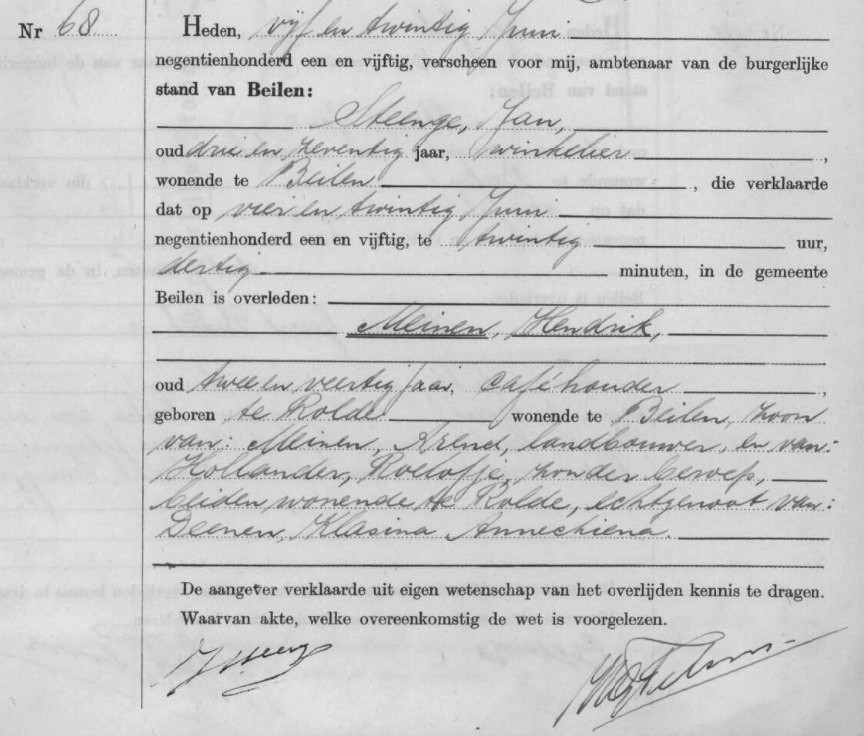 Nr 68. Heden, vijf en twintig Juni
negentienhonderd een en vijftig, verscheen voor mij, ambtenaar van de burgerlijke
stand van Beilen:
Steenge, Jan,
oud drie en zeventig jaar, winkelier ,
wonende te Beilen , die verklaarde
dat op vier en twintig Juni
negentienhonderd een en vijftig, te twintig uur,
dertig minuten, in de gemeente
Beilen is overleden:
Meinen, Hendrik,
oud twee en veertig jaar, caféhouder ,
geboren te Rolde wonende te Beilen, zoon
van: Meinen, Arend, landbouwer, en van:
Hollander, Roelofje, zonder beroep,
beiden wonende te Rolde, echtgenoot van:
Deenen, Klasina Annechiena.
De aangever verklaarde uit eigen wetenschap van het overlijden kennis te dragen.
Waarvan akte, welke overeenkomstig de wet is voorgelezen.